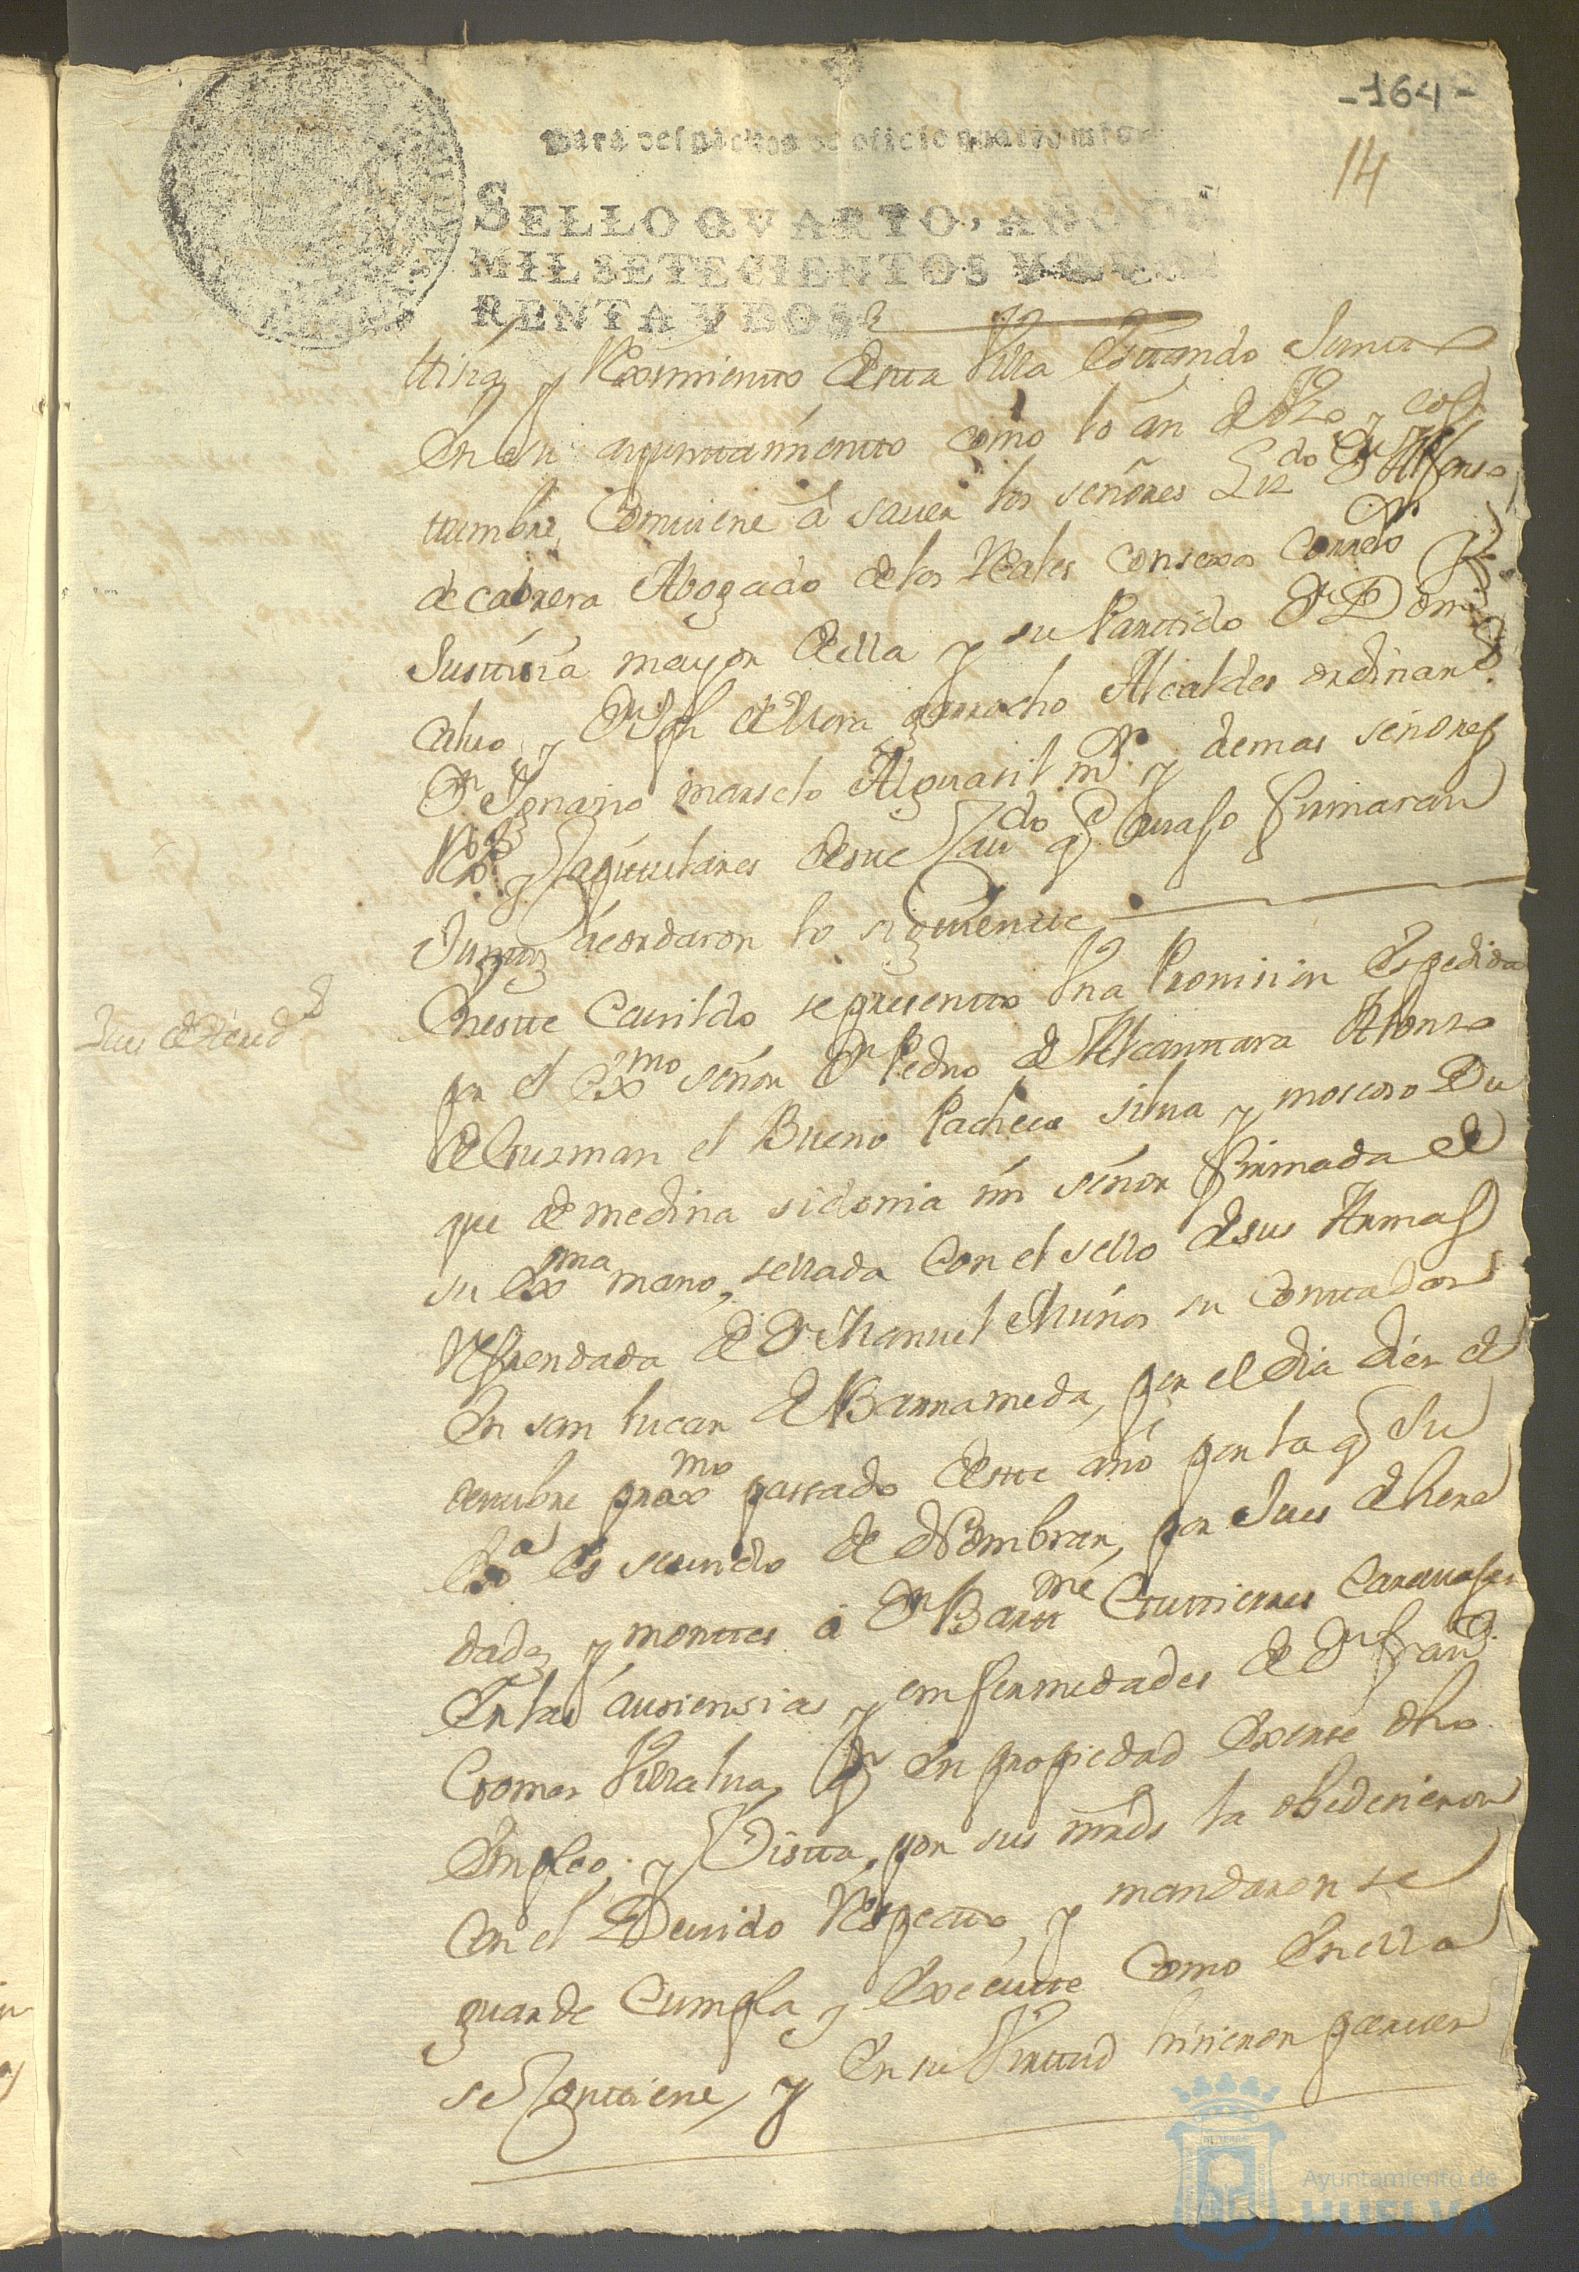 -164-
14
Para despachos de oficio quatro mrs.
SELLO QVARTO, AÑO DE
MIL SETECIENTOS Y QUA
RENTA Y DOS.
tticia y Reximiento Destta Villa Esttando Juntos
En su ayunttamientto como lo an de Vzo y cos
tumbre, Combiene á sauer los señores Lizdo Dn Alfonso
de cabrera Abogado de los Reales consexos Corredor
Justtizia mayor della y su Parttido Dn Domo
Caluo, y Dn Jph de Mora garrocho Alcaldes ordinarios
Dn Ygnazio marselo Alguasil mr. y demas señores
Rexs. y Capittulares desde Caudo q Avaso firmaran
Juntos acordaron lo siguientte
Jues de Hered
Enestte Cauildo se presentto Vna Provision Espedida
por el Exmo señor Dn Pedro de Alcanttara Alonso
de Guzman el Bueno Pacheco silua y moscoso Du
que de medina sidonia mi señor firmada de
su Exma mano, sellada Con el sello de sus Armas
Refrendada de Dn Manuel Muños su Conttador
En san lucar de Barrameda, por el dia dies de
octtubre proxmo passado destte año por la q Su
Exa Es seruido de Nombrar, por Jues de here
dades y monttes á Dn Bartme Guttierres Carauajer
En las Ausiensias y emfermedades de Dn Franco
Gomes Villalua, q En propiedad Exerse dho
Empleo; y Vistta, por sus mrds la obedecieron
Con el Deuido Respectto, y mandaron se
guarde Cumpla, y Execute Como En ella
se Conttiene, y En su Virttud hisieron parecer
Ayuntamiento de
HUELVA